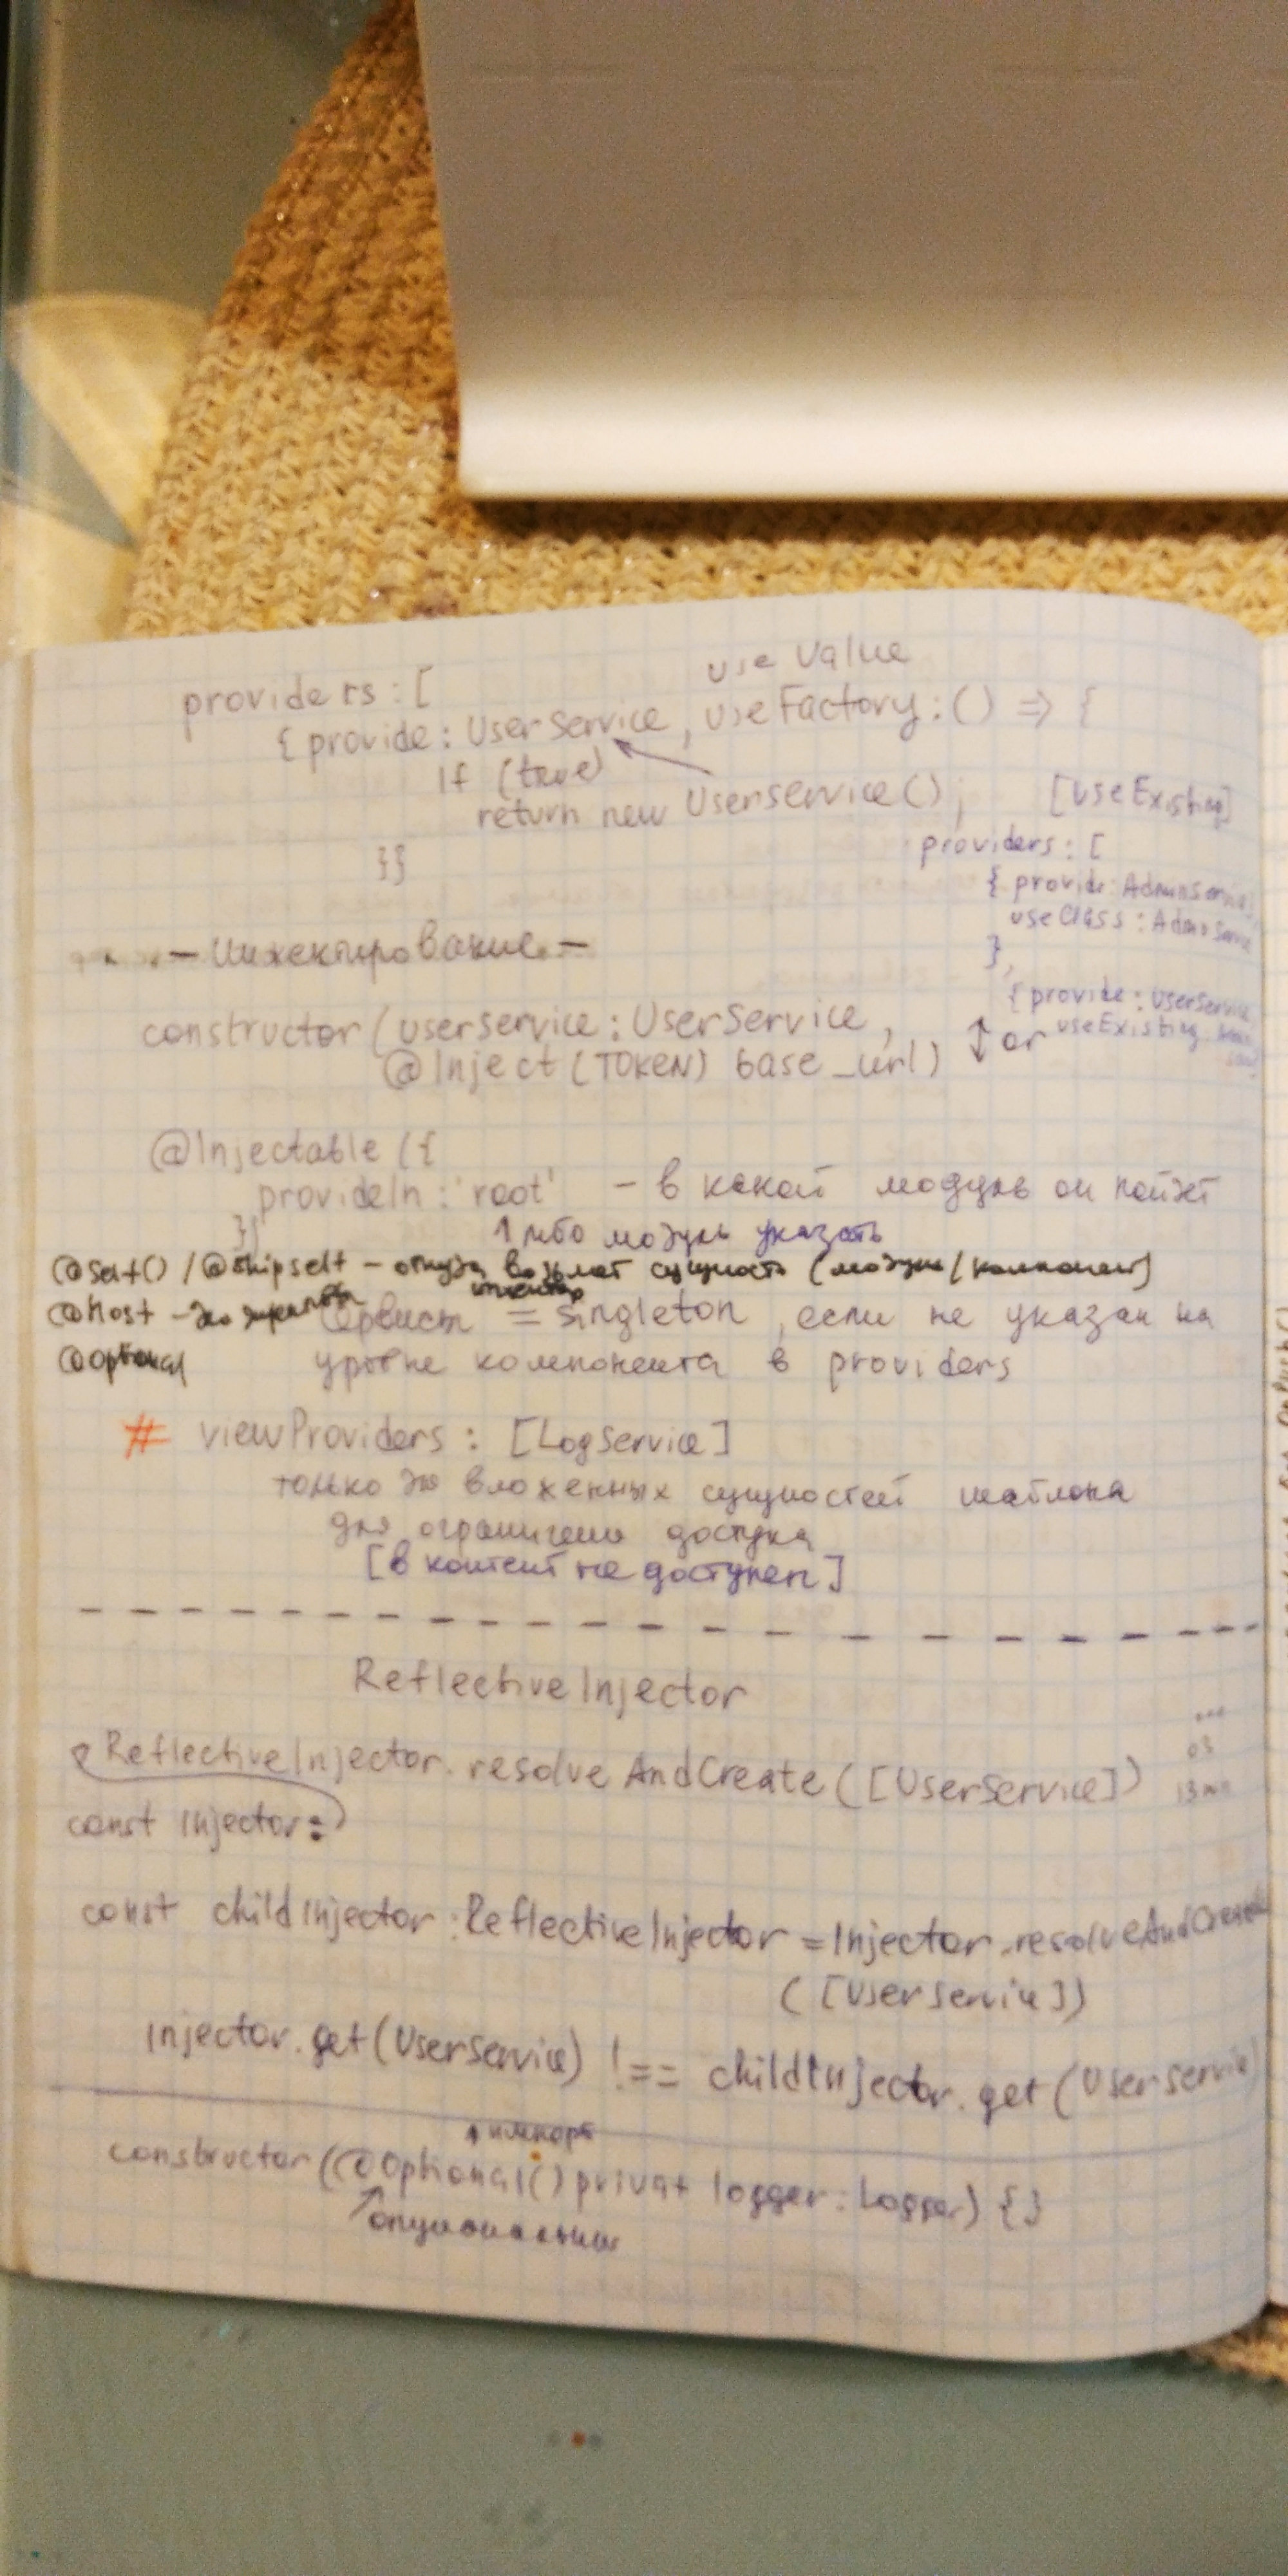 use Value
providers : [
{ provide : UserService , useFactory : () => {
if (true)
return new Userservice() ;
}}
[useExisting]
providers : [
{ provide: AdminService,
useClass : AdminService
},
{ provide : UserService
useExisting
— Инжектирование —
constructor ( userservice : UserService ,
@Inject (TOKEN) base_url) ↕ or
@Injectable ({
provideIn : 'root' – в какой модуль он пойдет
}) ↑ либо модуль указать
@Self() / @skipself – откуда возьмет сущность (модуль/компонент)
@host – инжектор
Сервисы = singleton , если не указан на
@Optional уровне компонента в providers
# viewProviders : [LogService]
только для вложенных сущностей шаблона
для ограничения доступа
[в контент не доступен]
ReflectiveInjector
ReflectiveInjector. resolveAndCreate ([UserService])
const Injector =
const childInjector : ReflectiveInjector = Injector.resolveAndCreate
([UserService])
Injector.get(UserService) !== childInjector.get(Userservice)
↑ импорт
constructor(@Optional() privat logger : Logger) {}
↗ опциональный